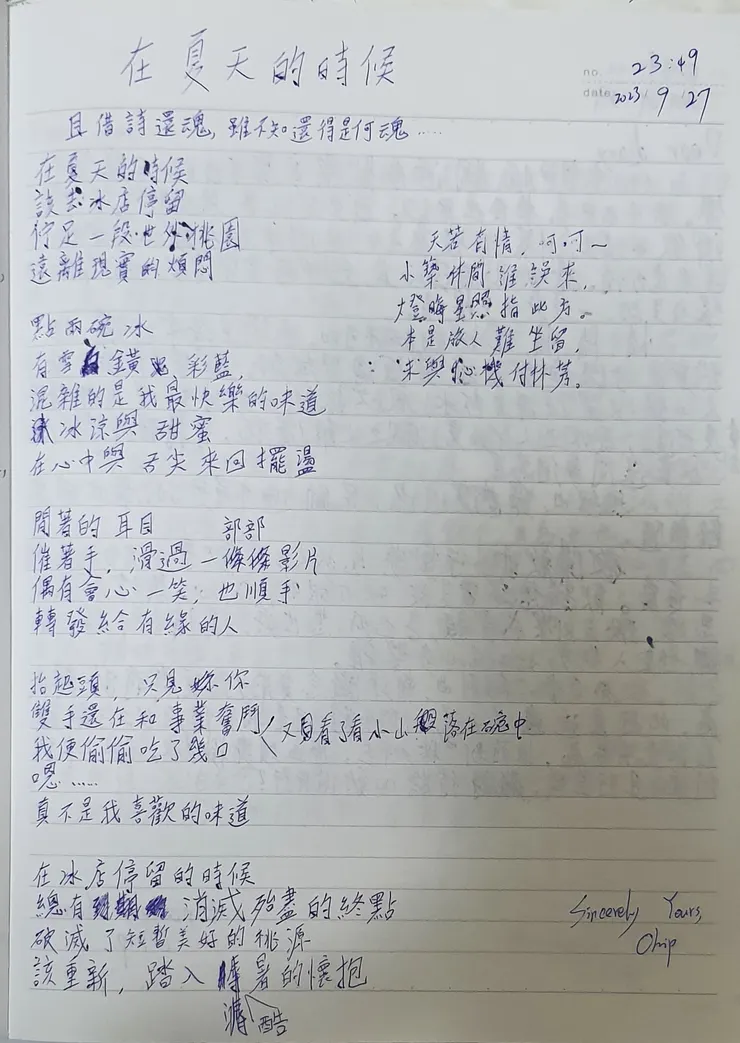 在夏天的時候
no. 23:49
date 2023/9/27
且借詩還魂,雖不知還得是何魂……
在夏天的時候
該去冰店停留
佇足一段世外桃園
遠離現實的煩悶
天若有情,呵呵~
小築林間誰誤來,
燈晦星照指此方。
本是旅人難坐留,
未與心機付林芳。
點兩碗冰
有雪 鐵 彩藍,
混雜的是我最快樂的味道
冰涼與甜蜜
在心中與舌尖來回擺盪
閒著的耳目 部部
催著手,滑過一條條影片
偶有會心一笑,也順手
轉發給有緣的人
抬起頭,只見你
雙手還在和事業奮鬥
又看了看小山 落在碗中
我便偷偷吃了幾口
嗯……
真不是我喜歡的味道
在冰店停留的時候
總有 消滅殆盡的終點
破滅了短暫美好的桃源
該重新,踏入 暑的懷抱
溽 酷
Sincerely Yours,
Chip